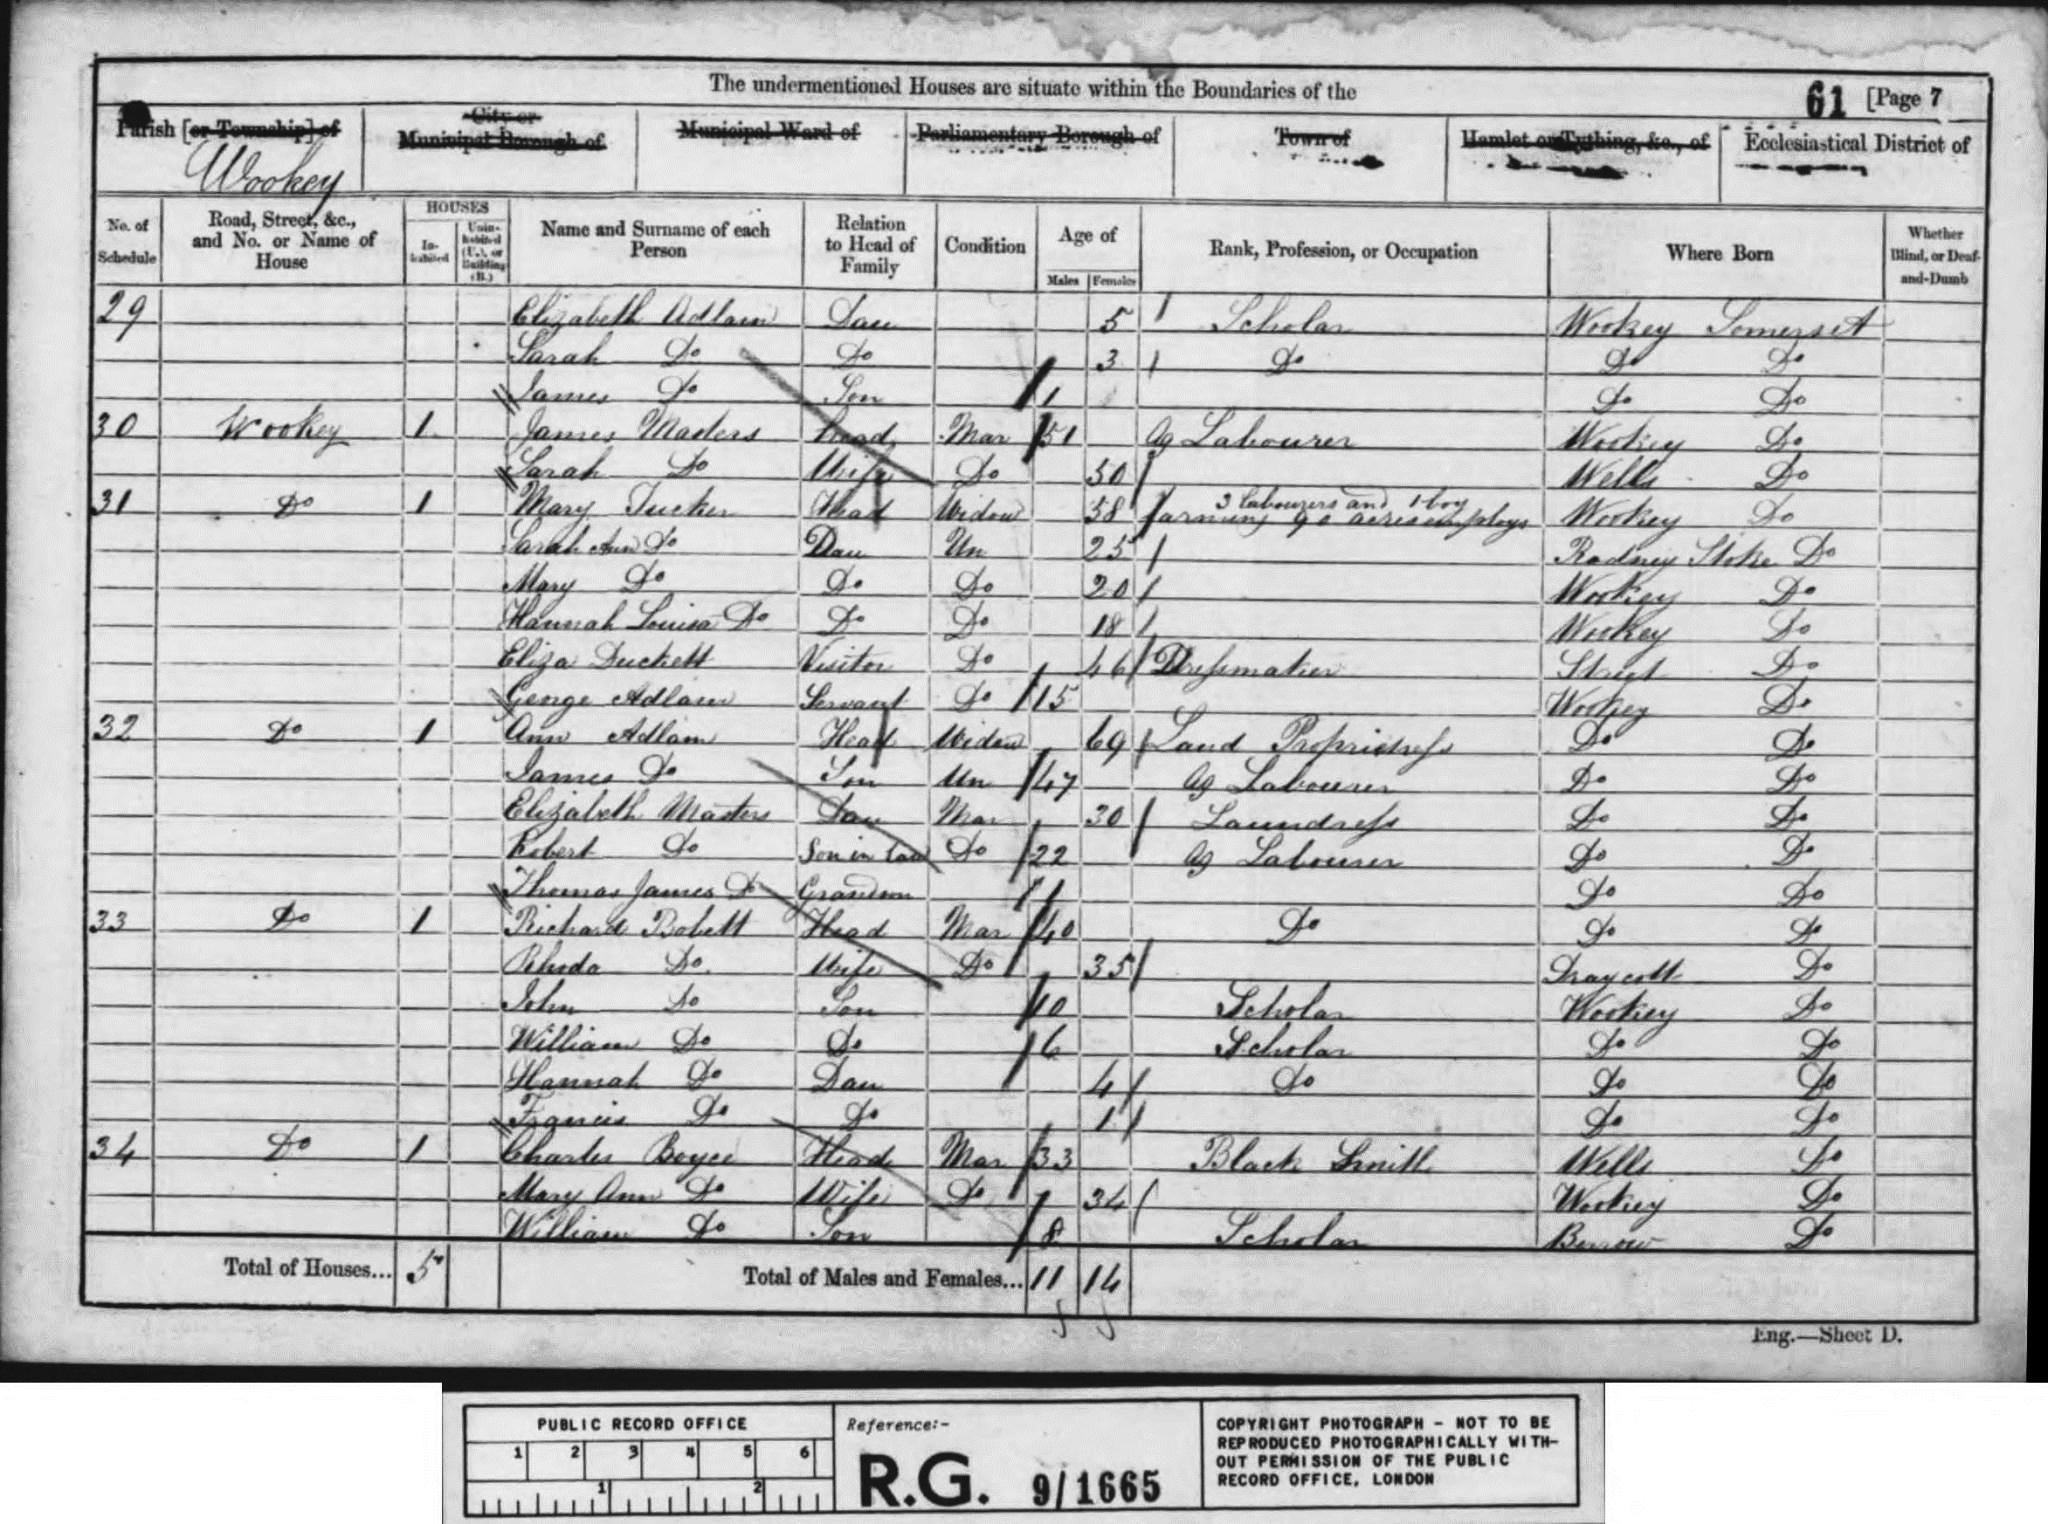 The undermentioned Houses are situate within the Boundaries of the
61 [Page 7
Parish [or Township] of
City or Municipal Borough of
Municipal Ward of
Parliamentary Borough of
Town of
Hamlet or Tything, &c., of
Ecclesiastical District of
Wookey
No. of Schedule
Road, Street, &c., and No. or Name of House
HOUSES
In-habited
Unin-habited (U.), or Building (B.)
Name and Surname of each Person
Relation to Head of Family
Condition
Age of
Males
Females
Rank, Profession, or Occupation
Where Born
Whether Blind, or Deaf-and-Dumb
29 Elizabeth Adlam Dau 5 Scholar Wookey Somerset
Sarah Do Do 3 Do Do Do
James Do Son 1 Do Do
30 Wookey 1 James Masters Head Mar 51 Ag Labourer Wookey Do
Sarah Do Wife Do 50 Wells Do
31 Do 1 Mary Tucker Head Widow 58 farming 90 acres employs 3 labourers and 1 boy Wookey Do
Sarah Ann Do Dau Un 25 Rodney Stoke Do
Mary Do Do Do 20 Wookey Do
Hannah Louisa Do Do Do 18 Wookey Do
Eliza Duckett Visitor Do 46 Dressmaker Street Do
George Adlam Servant Do 15 Wookey Do
32 Do 1 Ann Adlam Head Widow 69 Land Proprietress Do Do
James Do Son Un 47 Ag Labourer Do Do
Elizabeth Masters Dau Mar 30 Laundress Do Do
Robert Do Son in law Do 22 Ag Labourer Do Do
Thomas James Do Grandson 1 Do Do
33 Do 1 Richard Bobett Head Mar 40 Do Do Do
Rhoda Do Wife Do 35 Draycott Do
John Do Son 10 Scholar Wookey Do
William Do Do 6 Scholar Do Do
Hannah Do Dau 4 Do Do Do
Francis Do Do 1 Do Do
34 Do 1 Charles Boyce Head Mar 33 Black Smith Wells Do
Mary Ann Do Wife Do 34 Wookey Do
William Do Son 8 Scholar Berrow Do
Total of Houses... 5
Total of Males and Females... 11 14
Eng.—Sheet D.
PUBLIC RECORD OFFICE
1 2 3 4 5 6
1 2
Reference:-
R.G. 9/1665
COPYRIGHT PHOTOGRAPH - NOT TO BE
REPRODUCED PHOTOGRAPHICALLY WITH-
OUT PERMISSION OF THE PUBLIC
RECORD OFFICE, LONDON